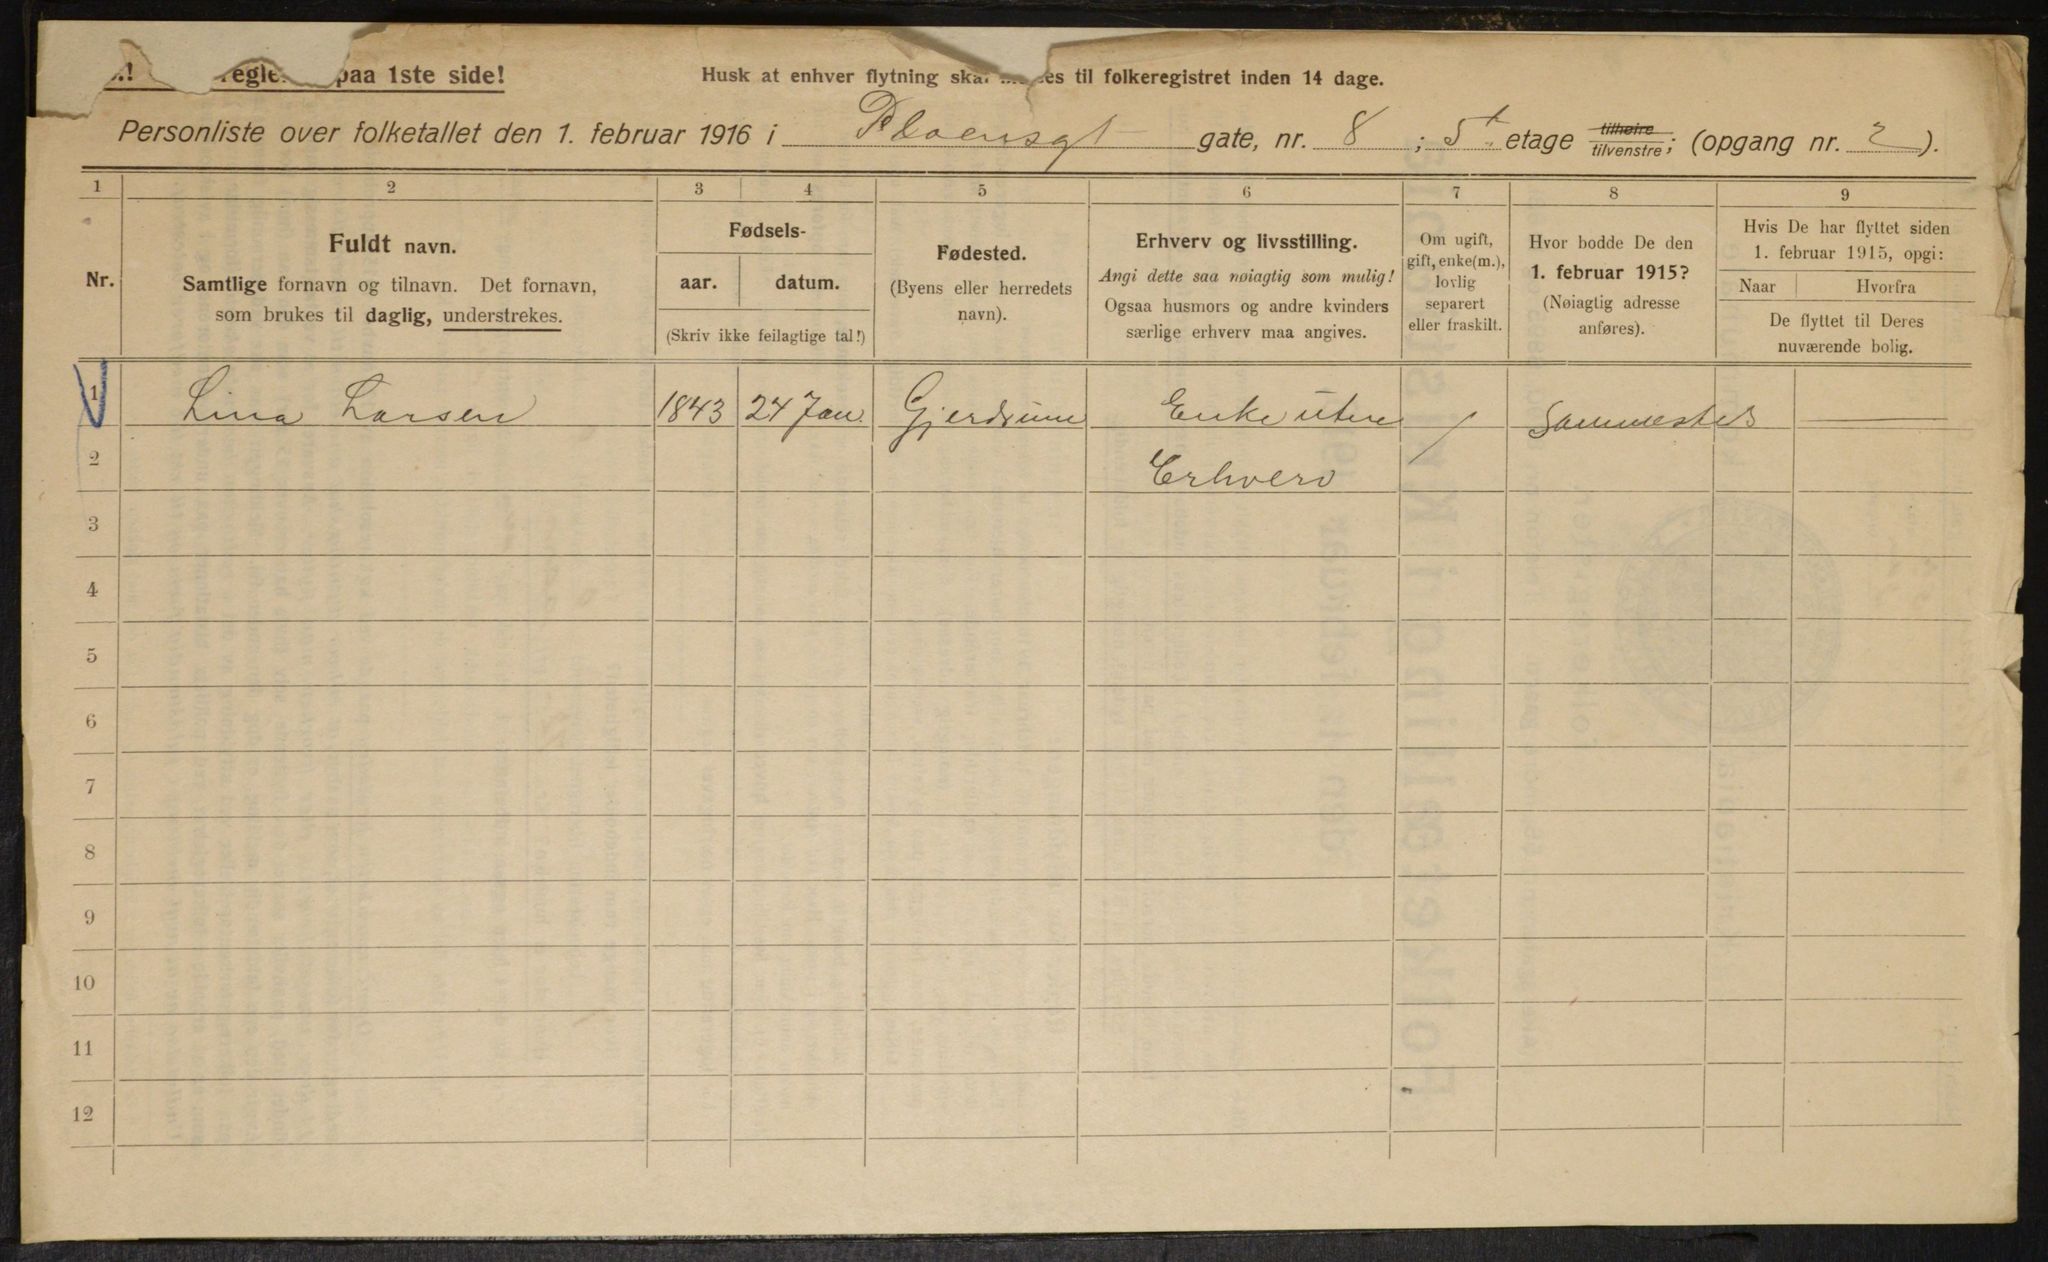 regle paa 1ste side!
Husk at enhver flytning skal meldes til folkeregistret inden 14 dage.
Personliste over folketallet den 1. februar 1916 i Ploensgt gate, nr. 8 ; 5t. etage tilhøire tilvenstre; (opgang nr. 2).
1 2 3 4 5 6 7 8 9
Nr.
Fuldt navn.
Samtlige fornavn og tilnavn. Det fornavn,
som brukes til daglig, understrekes.
Fødsels-
aar. datum.
(Skriv ikke feilagtige tal!)
Fødested.
(Byens eller herredets
navn).
Erhverv og livsstilling.
Angi dette saa nøiagtig som mulig!
Ogsaa husmors og andre kvinders
særlige erhverv maa angives.
Om ugift,
gift, enke(m.),
lovlig
separert
eller fraskilt.
Hvor bodde De den
1. februar 1915?
(Nøiagtig adresse
anføres).
Hvis De har flyttet siden
1. februar 1915, opgi:
Naar Hvorfra
De flyttet til Deres
nuværende bolig.
1 Lina Larsen 1843 24 Jan. Gjerdrum Enke uten / Sammesteds
2 Erhverv
3
4
5
6
7
8
9
10
11
12